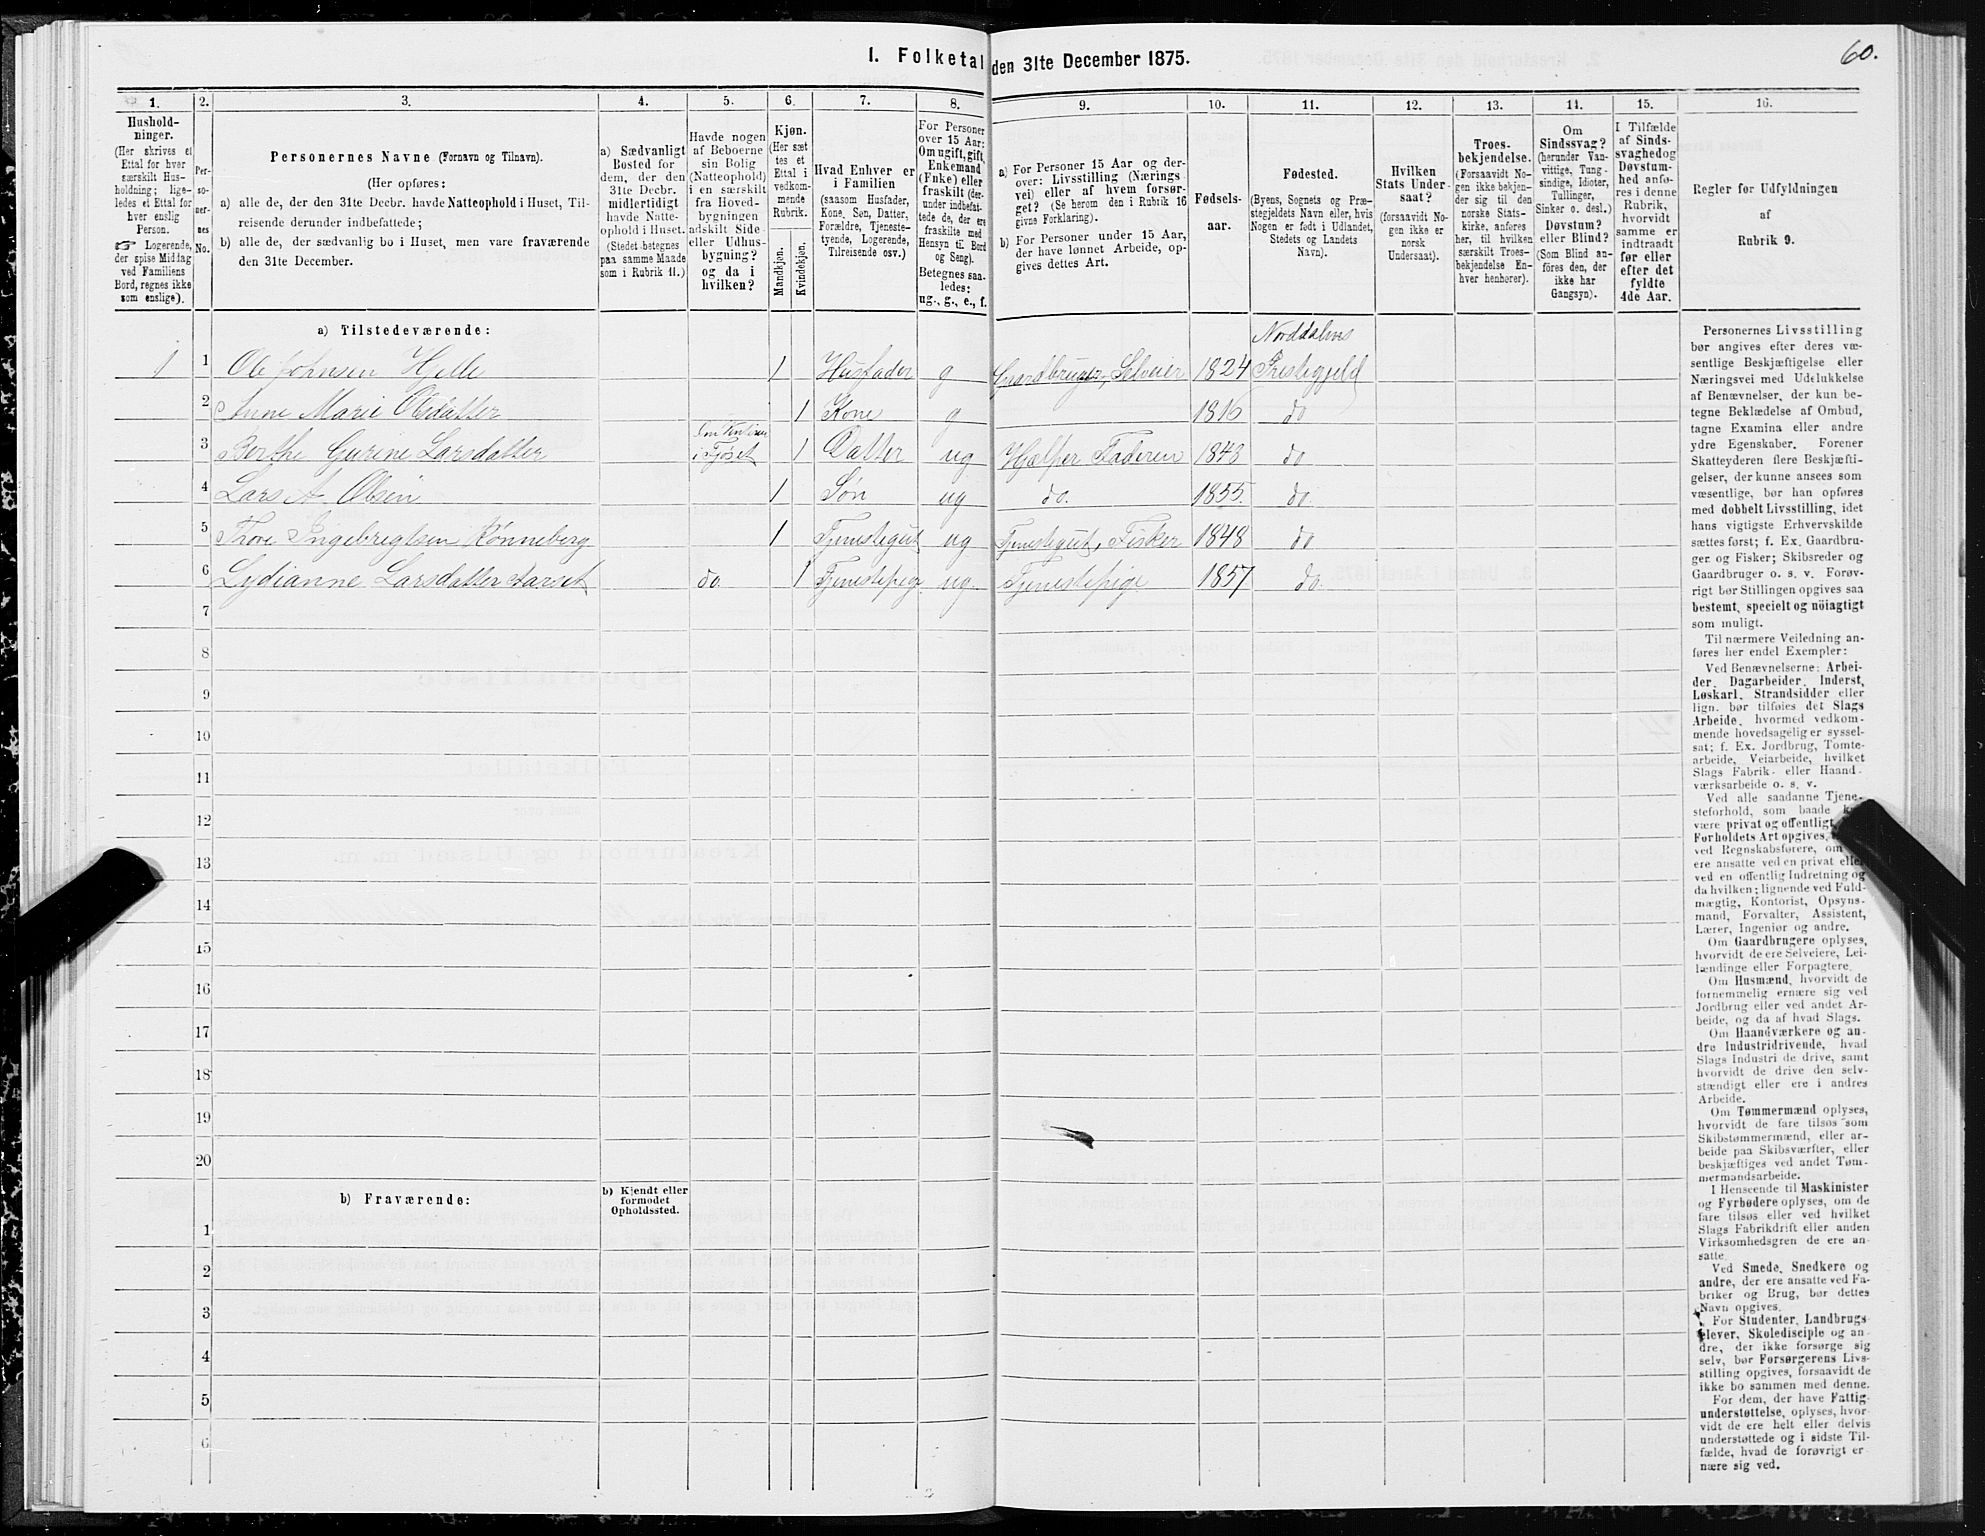 I. Folketal den 31te December 1875.
60.
1. 2. 3. 4. 5. 6. 7. 8. 9. 10. 11. 12. 13. 14. 15. 16.
Hushold-
ninger.
(Her skrives et
Ettal for hver
særskilt Hus-
holdning; lige-
ledes et Ettal for
hver enslig
Person.
☞ Logerende,
der spise Middag
ved Familiens
Bord, regnes ikke
som enslige).
Per-
so-
ner-
nes
No.
Personernes Navne (Fornavn og Tilnavn).
(Her opføres:
a) alle de, der den 31te Decbr. havde Natteophold i Huset, Til-
reisende derunder indbefattede;
b) alle de, der sædvanlig bo i Huset, men vare fraværende
den 31te December.
a) Sædvanligt
Bosted for
dem, der den
31te Decbr.
midlertidigt
havde Natte-
ophold i Huset.
(Stedet betegnes
paa samme Maade
som i Rubrik 11.)
Havde nogen
af Beboerne
sin Bolig
(Natteophold)
i en særskilt
fra Hoved-
bygningen
adskilt Side-
eller Udhus-
bygning?
og da i
hvilken?
Kjøn.
(Her sæt
tes et
Ettal i
vedkom-
mende
Rubrik.
Mandkjøn.
Kvindekjøn.
Hvad Enhver er
i Familien
(saasom Husfader,
Kone, Søn, Datter,
Forældre, Tjeneste-
tyende, Logerende,
Tilreisende osv.)
For Personer
over 15 Aar:
Om ugift, gift,
Enkemand
(Enke) eller
fraskilt (der-
under indbefat-
tede de, der ere
fraskilte med
Hensyn til Bord
og Seng).
Betegnes saa-
ledes:
ug., g., e., f.
a) For Personer 15 Aar og der-
over: Livsstilling (Nærings-
vei) eller af hvem forsør-
get? (Se herom den i Rubrik 16
givne Forklaring).
b) For Personer under 15 Aar,
der have lønnet Arbeide, op-
gives dettes Art.
Fødsels-
aar.
Fødested.
(Byens, Sognets og Præ-
stegjeldets Navn eller, hvis
Nogen er født i Udlandet,
Stedets og Landets
Navn).
Hvilken
Stats Under-
saat?
(forsaavidt No-
gen ikke er
norsk
Undersaat).
Troes-
bekjendelse.
(Forsaavidt No-
gen ikke bekjen-
der sig til den
norske Stats-
kirke, anføres
her, til hvilken
særskilt Troes-
bekjendelse En-
hver henhører).
Om
Sindssvag?
(herunder Van-
vittige, Tung-
sindige, Idioter,
Tullinger,
Sinker o. desl.)
Døvstum?
eller Blind?
(Som Blind an-
føres den, der
ikke har
Gangsyn).
I Tilfælde
af Sinds-
svaghed og
Døvstum-
hed anfø-
res i denne
Rubrik,
hvorvidt
samme er
indtraadt
før eller
efter det
fyldte
4de Aar.
Regler for Udfyldningen
af
Rubrik 9.
a) Tilstedeværende:
Norddalens
1 1 Ole Johnsen Hjelle 1 Husfader g Gaardbruger, Selveier 1824 Præstegjeld
2 Anne Marie Olsdatter 1 Kone g 1816 do
3 Berthe Gurine Larsdatter i Fjøset 1 Datter ug Hjælper Faderen 1843 do
4 Lars A. Olsen 1 Søn ug do. 1855. do.
5 Thore Ingebrigtsen Rønneberg 1 Tjenestegut ug Tjenestegut, Fisker 1848 do
6 Lydianne Larsdatter Aarset do. 1 Tjenestepige ug. Tjenestepige 1857 do.
7
8
9
10
11
12
13
14
15
16
17
18
19
20
b) Fraværende:
b) Kjendt eller
formodet
Opholdssted.
1
2
3
4
5
6
Personernes Livsstilling
bør angives efter deres væ-
sentlige Beskjæftigelse eller
Næringsvei med Udelukkelse
af Benævnelser, der kun be-
tegne Beklædelse af Ombud,
tagne Examina eller andre
ydre Egenskaber. Forener
Skatteyderen flere Beskjæfti-
gelser, der kunne ansees som
væsentlige, bør han opføres
med dobbelt Livsstilling, idet
hans vigtigste Erhvervskilde
sættes først; f. Ex. Gaardbru-
ger og Fisker; Skibsreder og
Gaardbruger o. s. v. Forøv-
rigt bør Stillingen opgives saa
bestemt, specielt og nöiagtigt
som muligt.
Til nærmere Veiledning an-
føres her endel Exempler:
Ved Benævnelserne: Arbei-
der, Dagarbeider, Inderst,
Løskarl, Strandsidder eller
lign. bør tilføies det Slags
Arbeide, hvormed vedkom-
mende hovedsagelig er syssel-
sat; f. Ex. Jordbrug, Tomte-
arbeide, Veiarbeide, hvilket
Slags Fabrik- eller Haand-
værksarbeide o. s. v.
Ved alle saadanne Tjene-
steforhold, som baade
være privat og offentligt,
Forholdets Art opgives,
ved Regnskabsførere, om
ere ansatte ved en privat eller
ved en offentlig Indretning og
da hvilken; lignende ved Fuld-
mægtig, Kontorist, Opsyns-
mand, Forvalter, Assistent,
Lærer, Ingeniør og andre.
Om Gaardbrugere oplyses,
hvorvidt de ere Selveiere, Lei-
lændinge eller Forpagtere.
Om Husmænd, hvorvidt de
fornemmelig ernære sig ved
Jordbrug eller ved andet Ar-
beide, og da af hvad Slags.
Om Haandværkere og an-
dre Industridrivende, hvad
Slags Industri de drive, samt
hvorvidt de drive den selv-
stændigt eller ere i andres
Arbeide.
Om Tømmermænd oplyses,
hvorvidt de fare tilsøs som
Skibstømmermænd, eller ar-
beide paa Skibsværfter, eller
beskjæftiges ved andet Tøm-
mermandsarbeide.
I Henseende til Maskinister
og Fyrbødere oplyses, om de
fare tilsøs eller ved hvilket
Slags Fabrikdrift eller anden
Virksomhedsgren de ere an-
satte.
Ved Smede, Snedkere og
andre, der ere ansatte ved Fa-
briker og Brug, bør dettes
Navn opgives.
For Studenter, Landbrugs-
elever, Skoledisciple og an-
dre, der ikke forsørge sig
selv, bør Forsørgerens Livs-
stilling opgives, forsaavidt de
ikke bo sammen med denne.
For dem, der have Fattig-
understøttelse, oplyses, hvor-
vidt de ere helt eller delvis
understøttede og i sidste Til-
fælde, hvad de forøvrigt er-
nære sig ved.